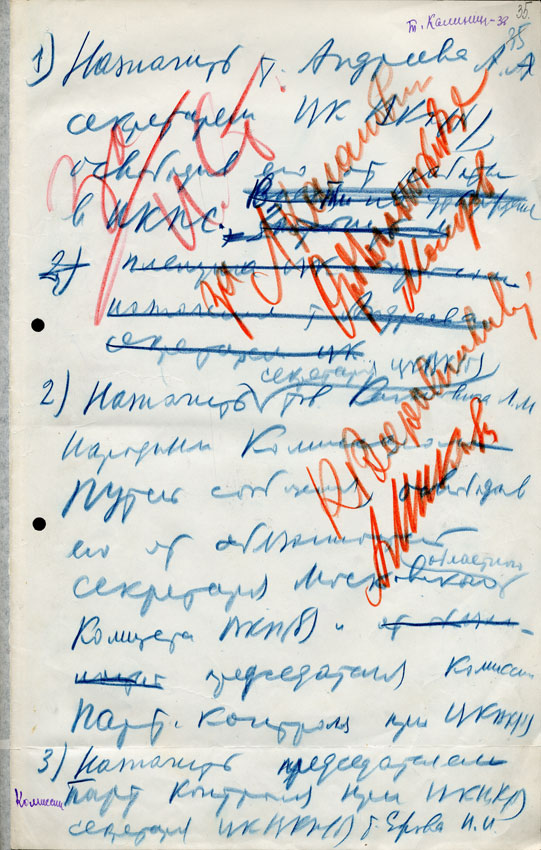 35.
т. Калинин - за
35
1) Назначить т. Андреева А.А.
секретарем ЦК ВКП(б),
освободив его от работы
в НКПС.
2) пленума ЦК
назначения т. Андреева
секретарем ЦК
секретаря ЦК ВКП(б)
2) Назначить тов. Кагановича Л.М.
Народным Комиссаром
Путей сообщения, освободив
его от обязанностей
областного
секретаря Московского
Комитета ВКП(б) и
председателя Комиссии
Парт. Контроля при ЦК ВКП(б)
3) Назначить председателем
Комиссии Парт Контроля при ЦК ВКП(б)
секретаря ЦК ВКП(б) т. Ежова Н.И.
За
И. Ст.
за Л. Каганович
Орджоникидзе
Молотов
К. Ворошилов
А. Микоян